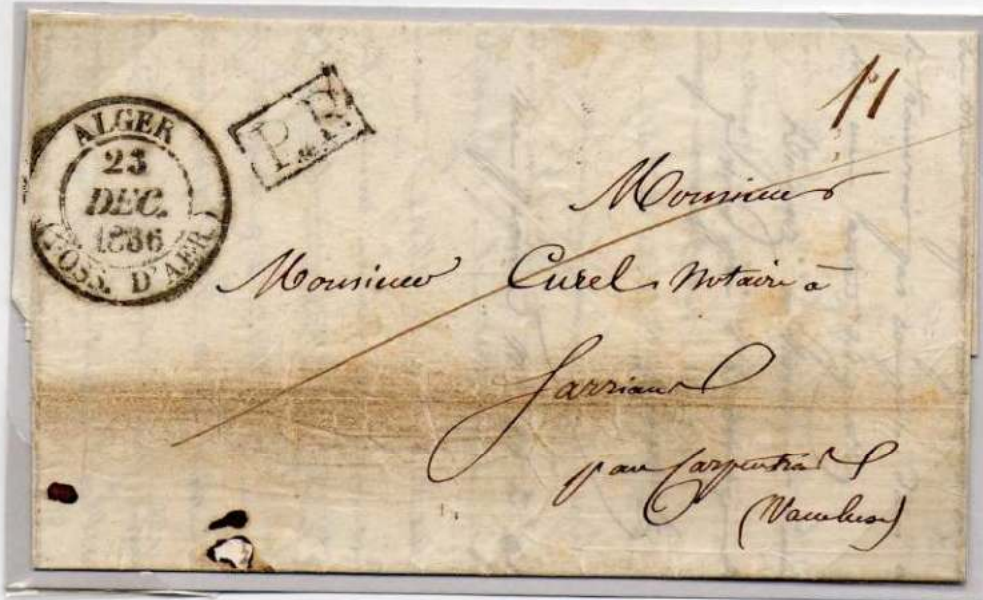 ALGER
23
DEC.
1836
(POSS. D'AFR.)
P.P.
11
Monsieur
Monsieur Curel Notaire à
Sarrians
par Carpentras
(Vaucluse)